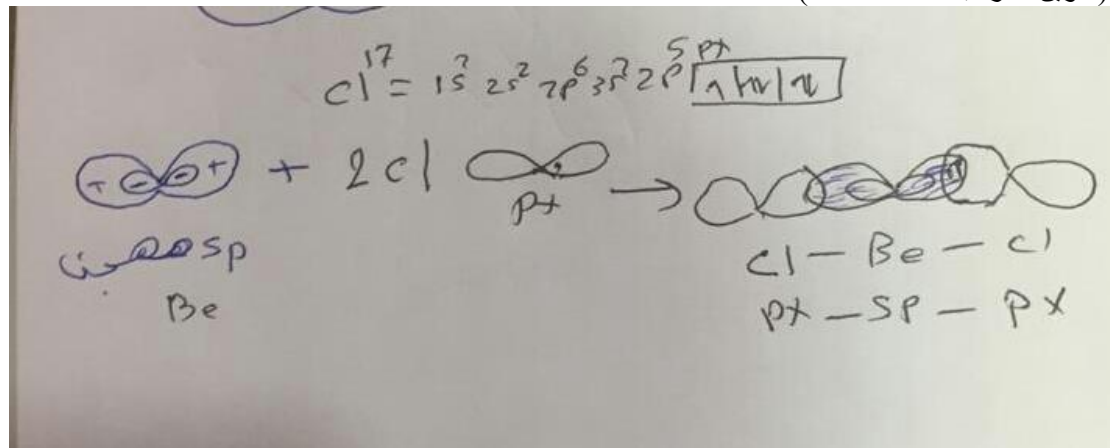 Cl¹⁷ = 1s² 2s² 2p⁶ 3s² 2p⁵ px
+ - - + + 2Cl →
px
مهجن sp
Be
Cl - Be - Cl
px - sp - px